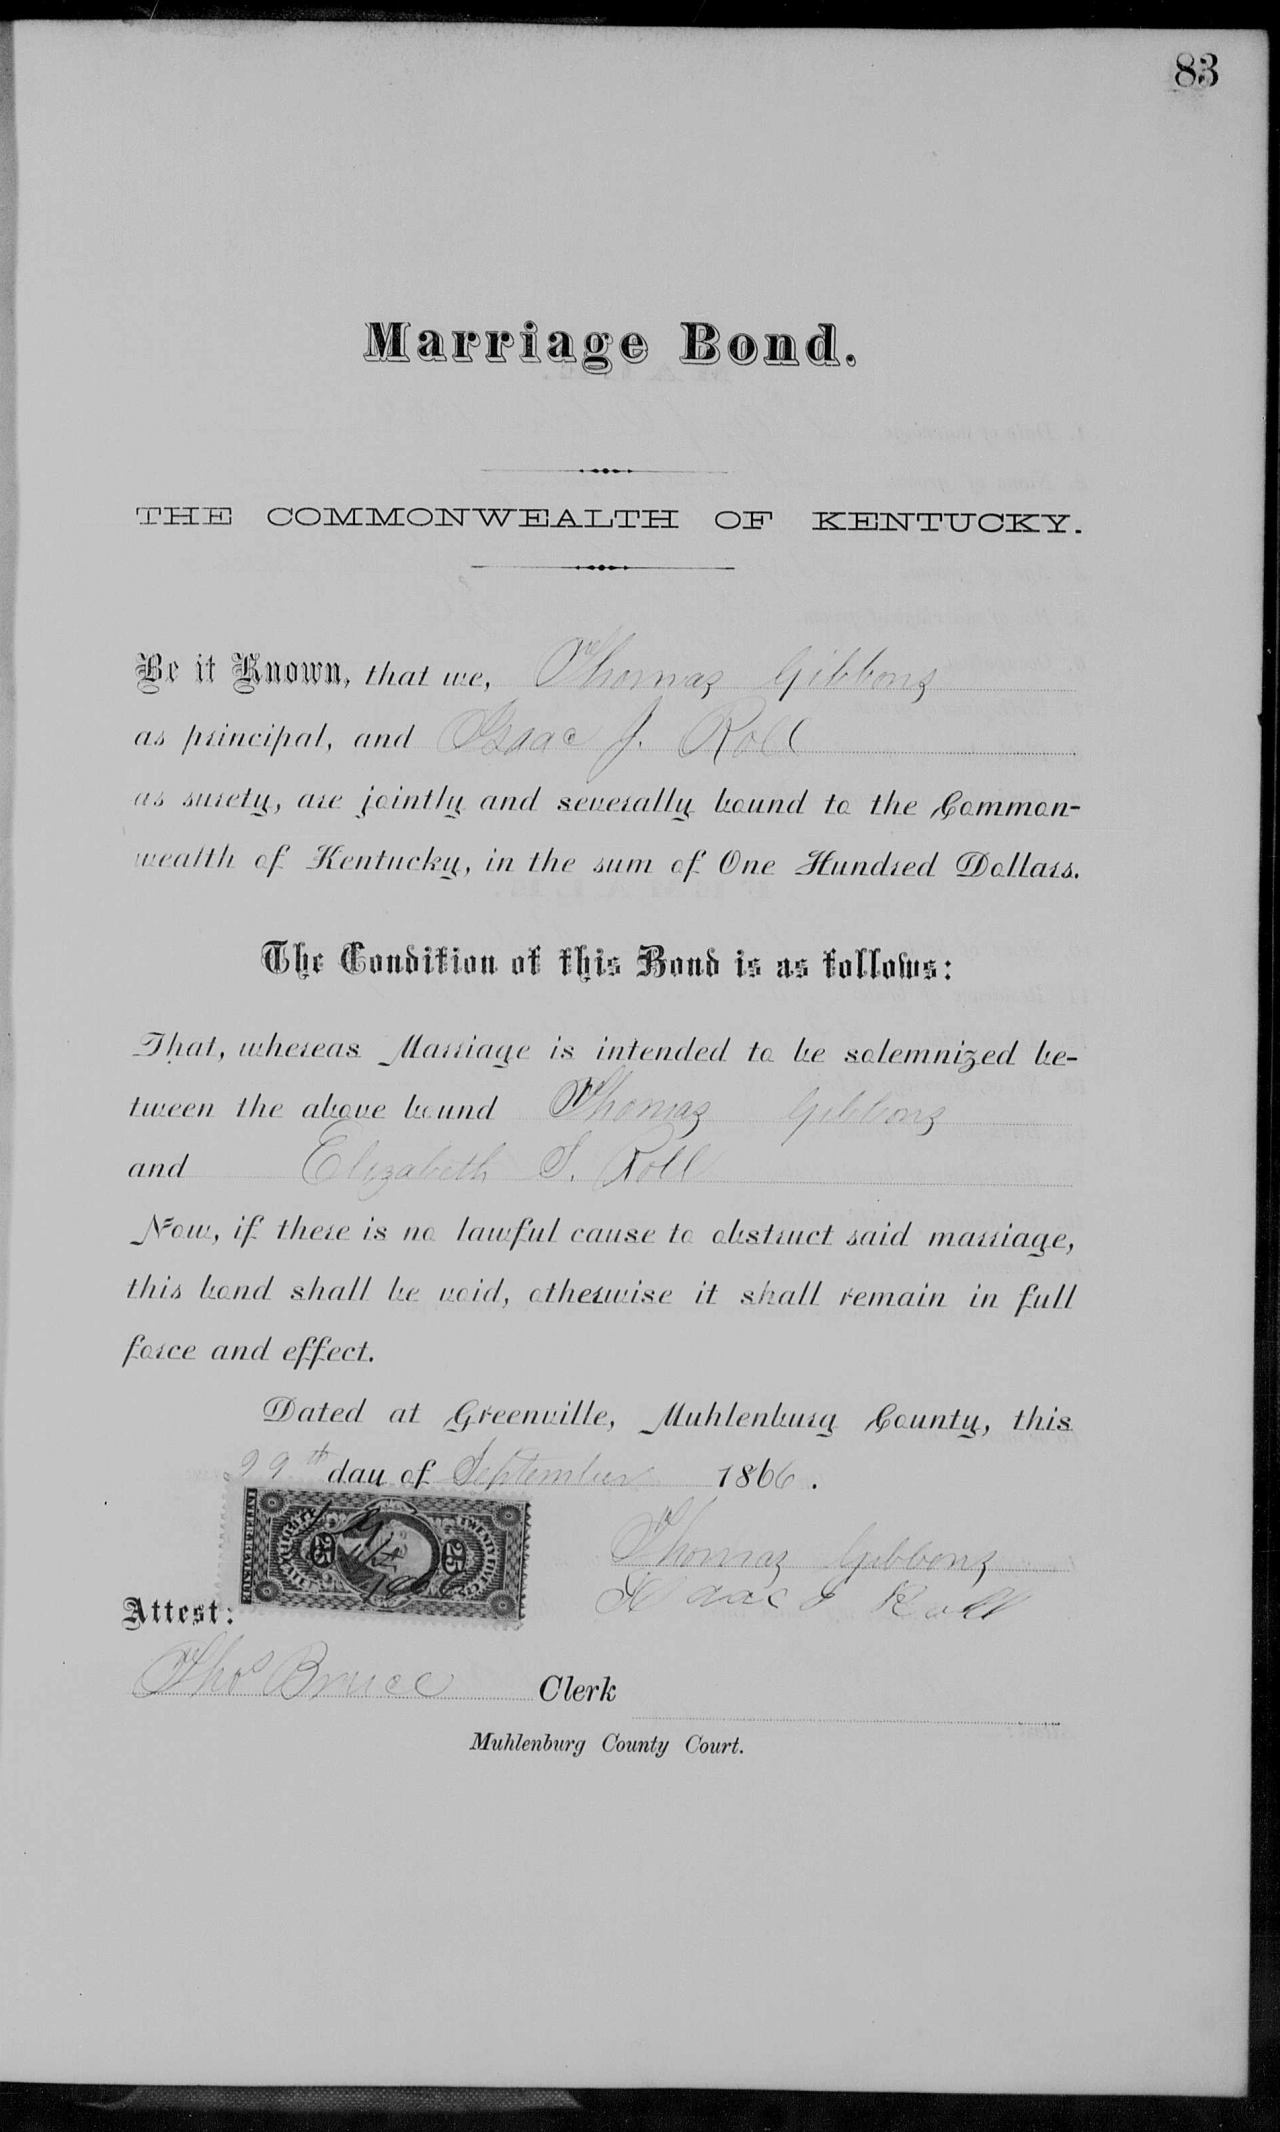 83
Marriage Bond.
THE COMMONWEALTH OF KENTUCKY.
Be it Known, that we, Thomas Gibbons
as principal, and Isaac J. Roll
as surety, are jointly and severally bound to the Common-
wealth of Kentucky, in the sum of One Hundred Dollars.
The Condition of this Bond is as follows:
That, whereas Marriage is intended to be solemnized be-
tween the above bound Thomas Gibbons
and Elizabeth S. Roll
Now, if there is no lawful cause to obstruct said marriage,
this bond shall be void, otherwise it shall remain in full
force and effect.
Dated at Greenville, Muhlenburg County, this
day of September 1866.
INTER. REVENUE
25 25
TWENTY FIVE CTS
Thomas Gibbons
Isaac J Roll
Attest:
Thos Bruce Clerk
Muhlenburg County Court.